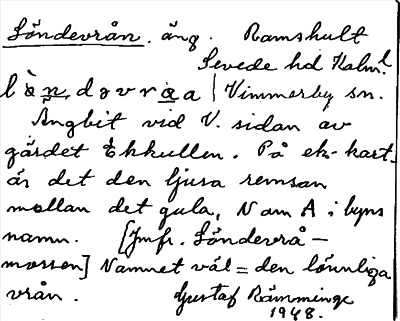 Löndevrån. äng. Ramshult
Sevede hd Kalm. l.
lòndəvrəa | Vimmerby sn.
Ängbit vid V. sidan av
gärdet Ekkullen. På ek-kart.
är det den ljusa remsan
mellan det gula, N om A i byns
namn. [Jmfr. Löndevrå-
mossen] Namnet väl = den lönnliga
vrån. Gustaf Rämminge
1948.